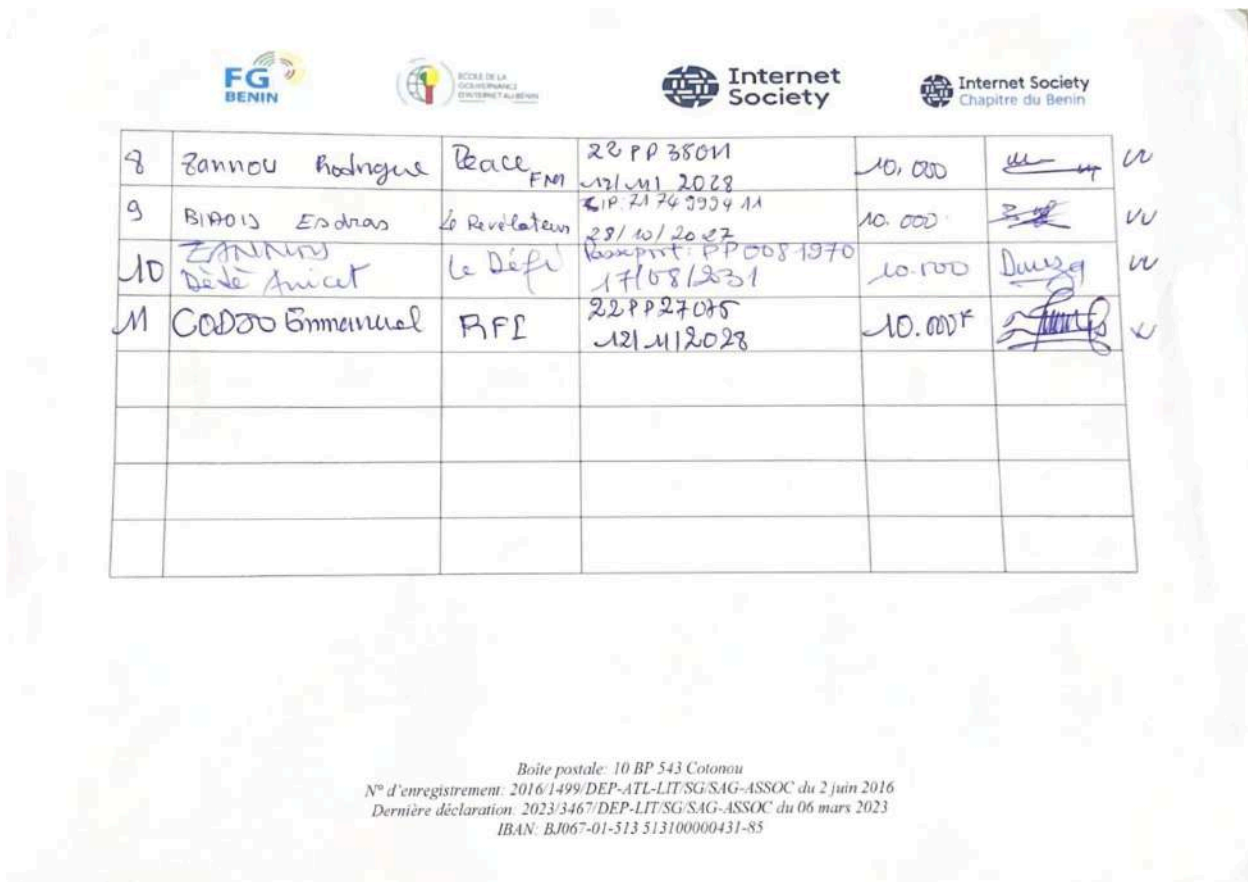 FG
BENIN
ECOLE DE LA
GOUVERNANCE
D'INTERNET AU BENIN
Internet
Society
Internet Society
Chapitre du Benin
8 Zannou Rodrigue Peace FM 22PP38011 12/11/2028 10,000
9 Esdras Le Revélateur CIP: 7174999411 28/10/2027 10.000
10 ZANNOU Dèdè Anicet Le Défi Passeport: PP0081970 17/08/2031 10.000
11 CODJO Emmanuel RFI 22PP27075 12/11/2028 10.000F
Boîte postale: 10 BP 543 Cotonou
N° d'enregistrement: 2016/1499/DEP-ATL-LIT/SG/SAG-ASSOC du 2 juin 2016
Dernière déclaration: 2023/3467/DEP-LIT/SG/SAG-ASSOC du 06 mars 2023
IBAN: BJ067-01-513 513100000431-85